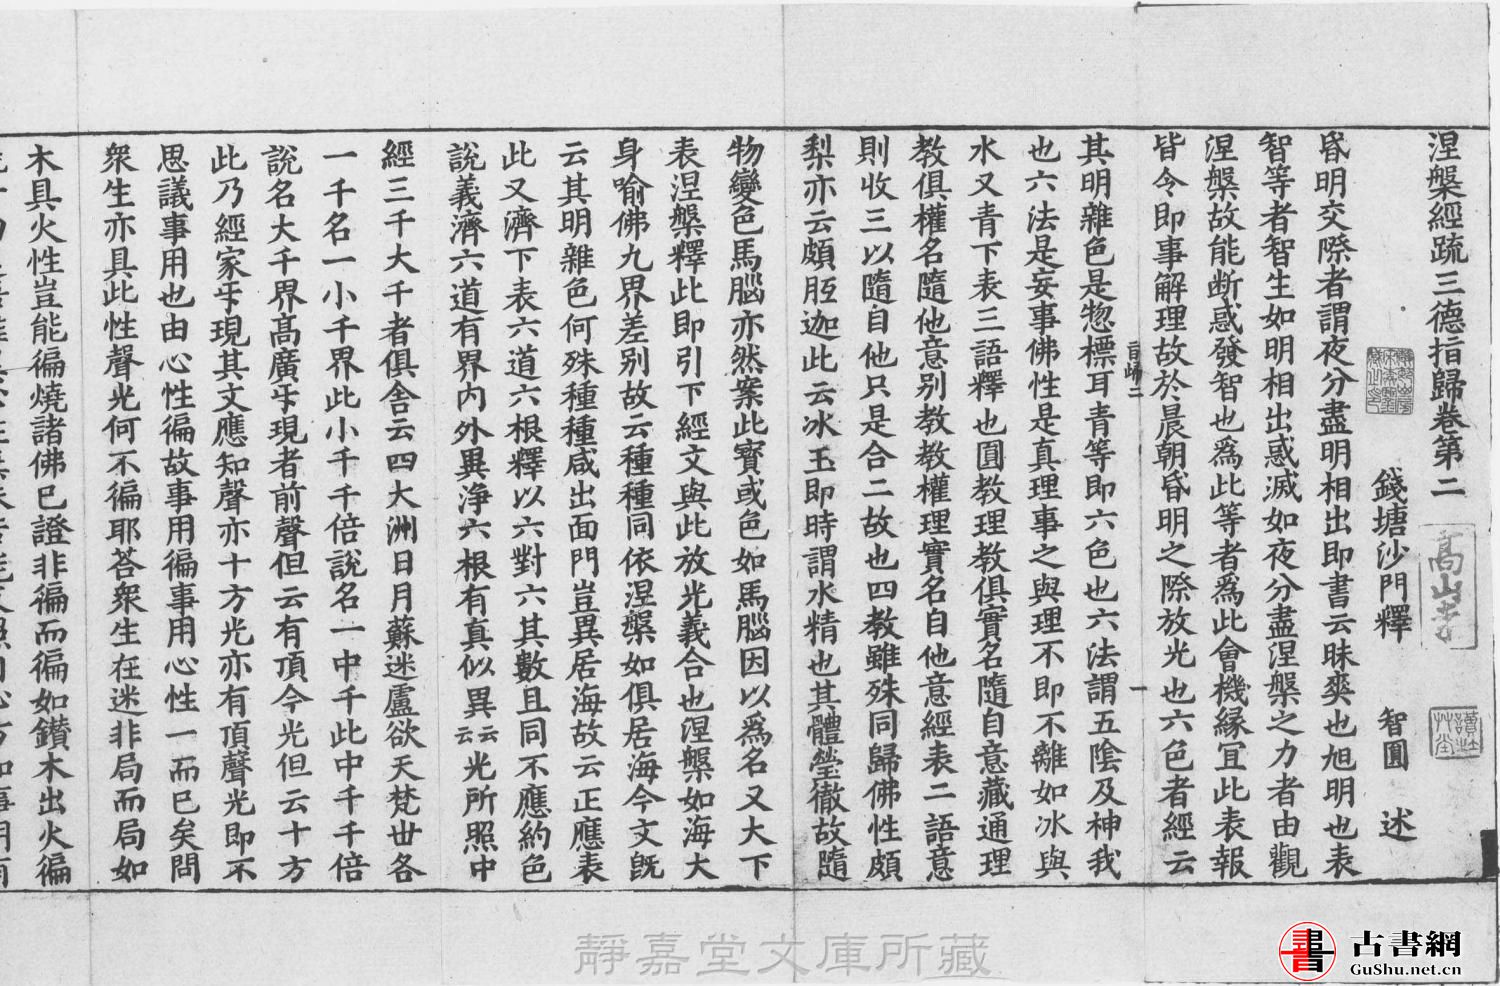 涅槃經疏三德指歸卷第二
錢塘沙門釋 智圓 述
昏明交際者謂夜分盡明相出即書云昧爽也旭明也表
智等者智生如明相出惑滅如夜分盡涅槃之力者由觀
涅槃故能断惑發智也爲此等者爲此會機緣冝此表報
皆令即事解理故於晨朝昏明之際放光也六色者經云
其明雜色是惣標耳青等即六色也六法謂五陰及神我
也六法是妄事佛性是真理事之與理不即不離如冰與
水又青下表三語釋也圓教理教俱實名隨自意藏通理
教俱權名隨他意别教教權理實名自他意經表二語意
則收三以隨自他只是合二故也四教雖殊同歸佛性頗
梨亦云頗胝迦此云冰玉即時謂水精也其體瑩徹故隨
物變色馬腦亦然案此寳或色如馬腦因以爲名又大下
表涅槃釋此即引下經文與此放光義合也涅槃如海大
身喻佛九界差别故云種種同依涅槃如俱居海今文旣
云其明雜色何殊種種咸出面門豈異居海故云正應表
此又濟下表六道六根釋以六對六其數且同不應約色
說義濟六道有界内外異浄六根有真似異云云光所照中
經三千大千者俱舍云四大洲日月蘇迷盧欲天梵丗各
一千名一小千界此小千千倍說名一中千此中千千倍
說名大千界髙廣㸦現者前聲但云有頂今光但云十方
此乃經家㸦現其文應知聲亦十方光亦有頂聲光即不
思議事用也由心性徧故事用徧事用心性一而已矣問
衆生亦具此性聲光何不徧耶荅衆生在迷非局而局如
木具火性豈能徧燒諸佛已證非徧而徧如鑚木出火徧
髙山寺
靜嘉堂文庫所藏
書
古書網
GuShu.net.cn